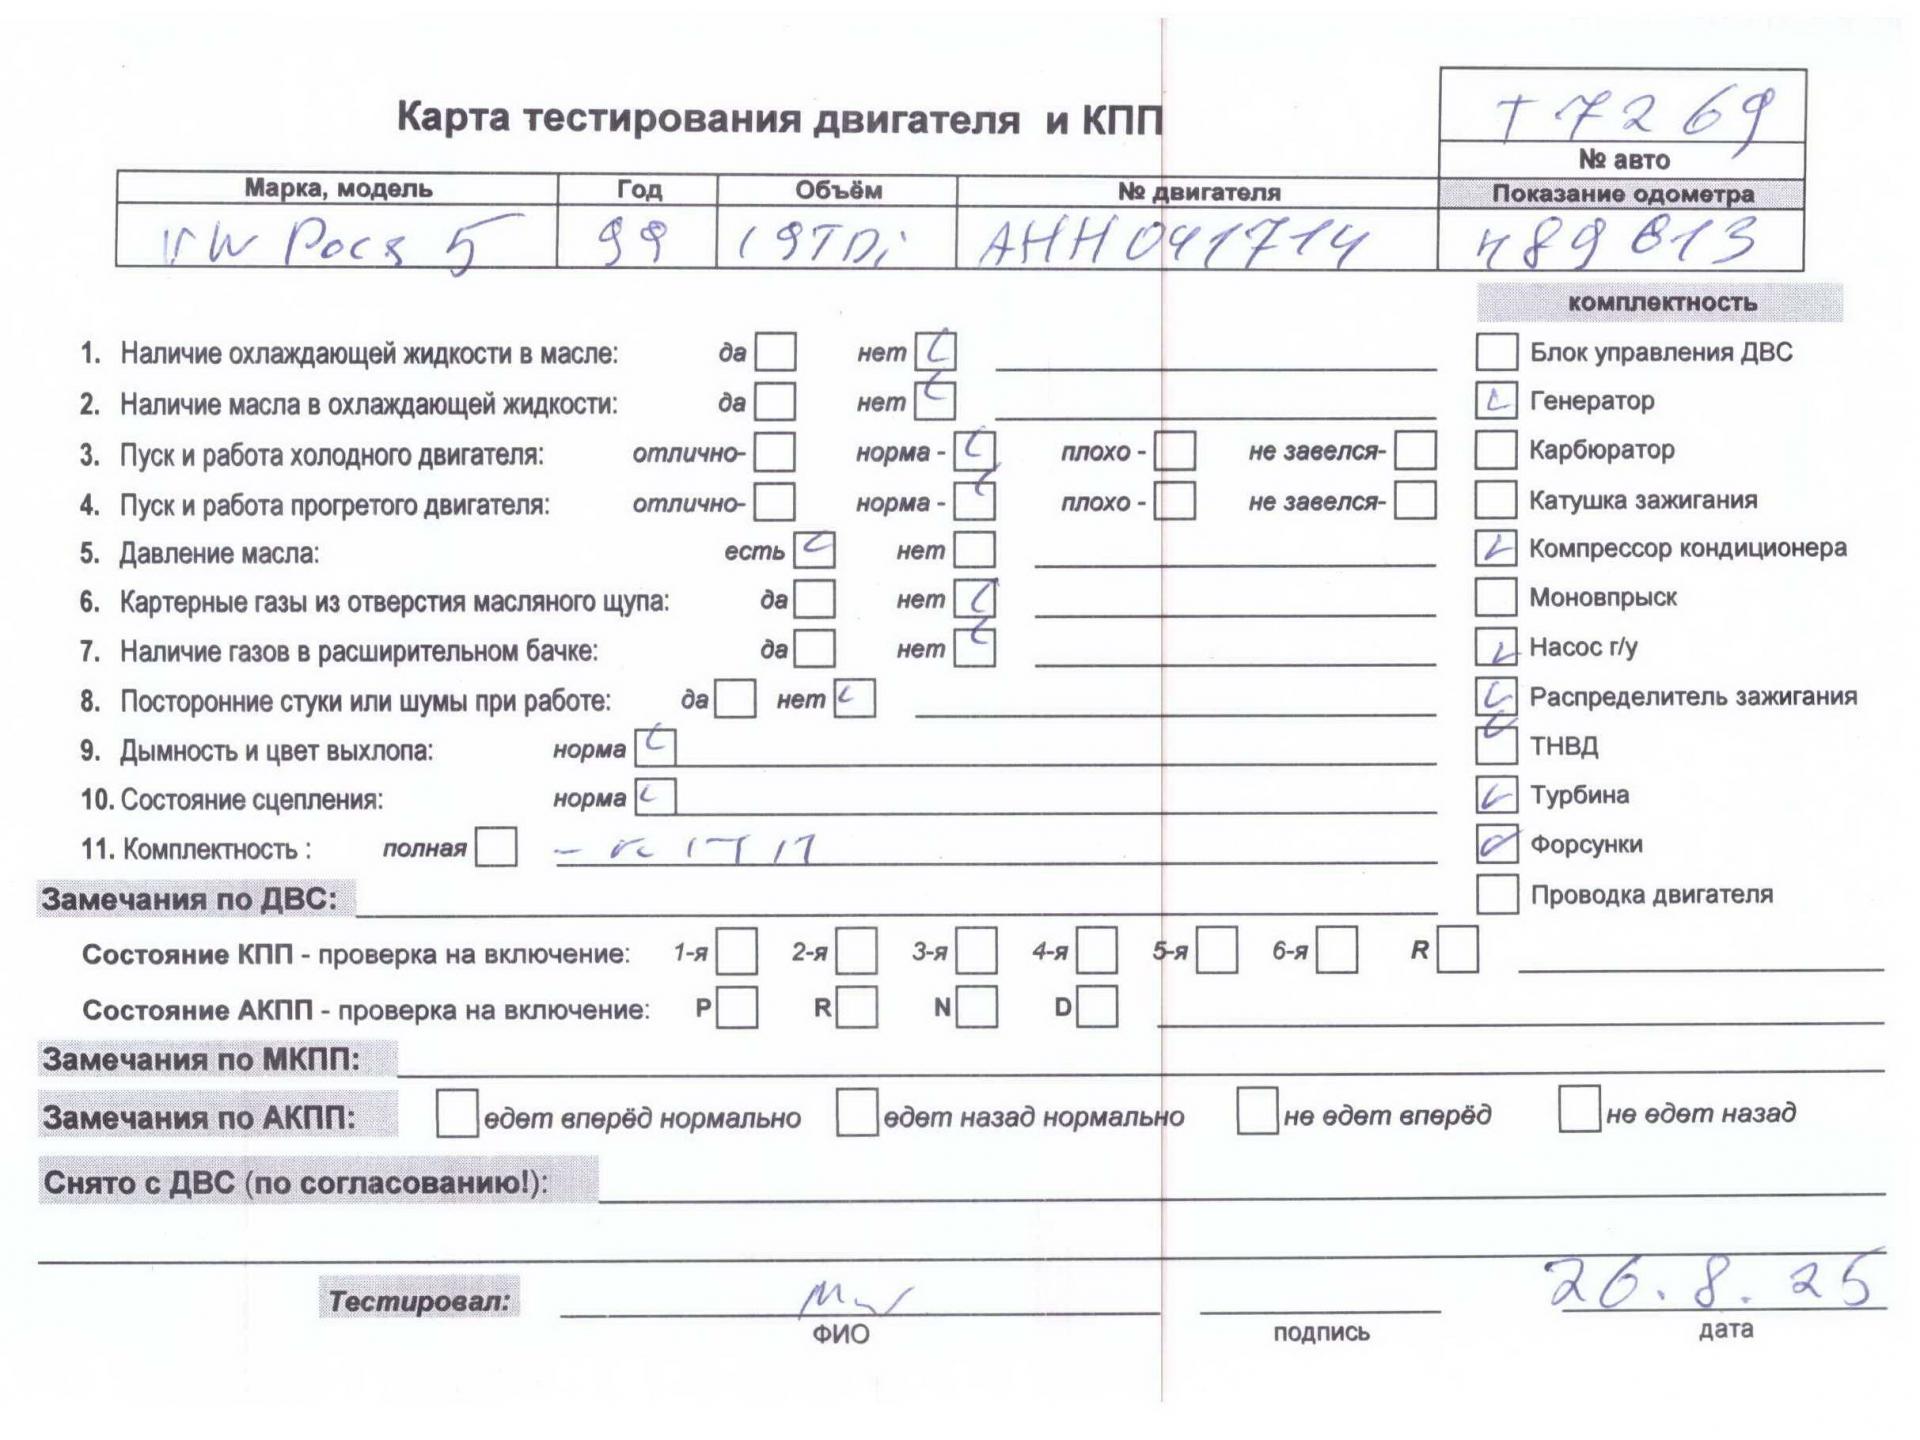 Карта тестирования двигателя и КПП
Т 7269
№ авто
Марка, модель Год Объём № двигателя Показание одометра
VW 5 99 1 9TDi AHH041714 489613
комплектность
1. Наличие охлаждающей жидкости в масле: да нет Блок управления ДВС
2. Наличие масла в охлаждающей жидкости: да нет Генератор
3. Пуск и работа холодного двигателя: отлично- норма - плохо - не завелся- Карбюратор
4. Пуск и работа прогретого двигателя: отлично- норма - плохо - не завелся- Катушка зажигания
5. Давление масла: есть нет Компрессор кондиционера
6. Картерные газы из отверстия масляного щупа: да нет Моновпрыск
7. Наличие газов в расширительном бачке: да нет Насос г/у
8. Посторонние стуки или шумы при работе: да нет Распределитель зажигания
9. Дымность и цвет выхлопа: норма ТНВД
10. Состояние сцепления: норма Турбина
11. Комплектность : полная Форсунки
Замечания по ДВС: Проводка двигателя
Состояние КПП - проверка на включение: 1-я 2-я 3-я 4-я 5-я 6-я R
Состояние АКПП - проверка на включение: P R N D
Замечания по МКПП:
Замечания по АКПП: едет вперёд нормально едет назад нормально не едет вперёд не едет назад
Снято с ДВС (по согласованию!):
Тестировал: 26.8.25
ФИО подпись дата